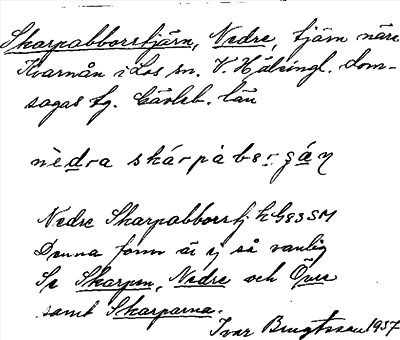 Skarpabborrtjärn, Nedre, tjärn näre
Kvarnån i Los sn. V. Hälsingl. dom-
sagas tg. Gävleb. län
nèdra skárpàber
Nedre Skarpabborrtj
Denna form är ej så vanlig
Se Skarpen, Nedre och Övre
samt Skarparna.
Ivar Bengtsson 1937